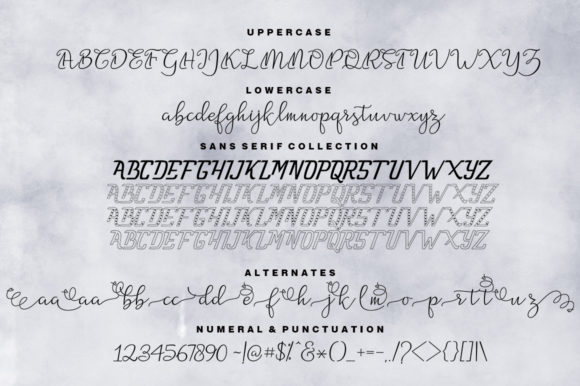 UPPERCASE
ABCDEFGHIJKLMNOPQRSTUVWXYZ
LOWERCASE
abcdefghijklmnopqrstuvwxyz
SANS SERIF COLLECTION
ABCDEFGHIJKLMNOPQRSTUVWXYZ
ABCDEFGHIJKLMNOPQRSTUVWXYZ
ABCDEFGHIJKLMNOPQRSTUVWXYZ
ABCDEFGHIJKLMNOPQRSTUVWXYZ
ALTERNATES
aa aa bb cc dd e f h j k l m o p r s tt u z
NUMERAL & PUNCTUATION
1234567890 ~!@#$%^&*()_+=-,./?<>{}[]|\